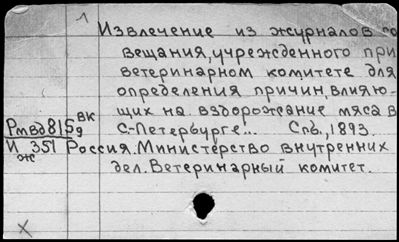 1
Извлечение из журналов со
вещания, учрежденного при
ветеринарном комитете для
определения причин, влияю-
щих на вздорожание мяса в
С-Петербурге... Спб., 1893.
Россия. Министерство внутренних
дел. Ветеринарный комитет.
Рмвд815 вк
9
И 351
ж
X